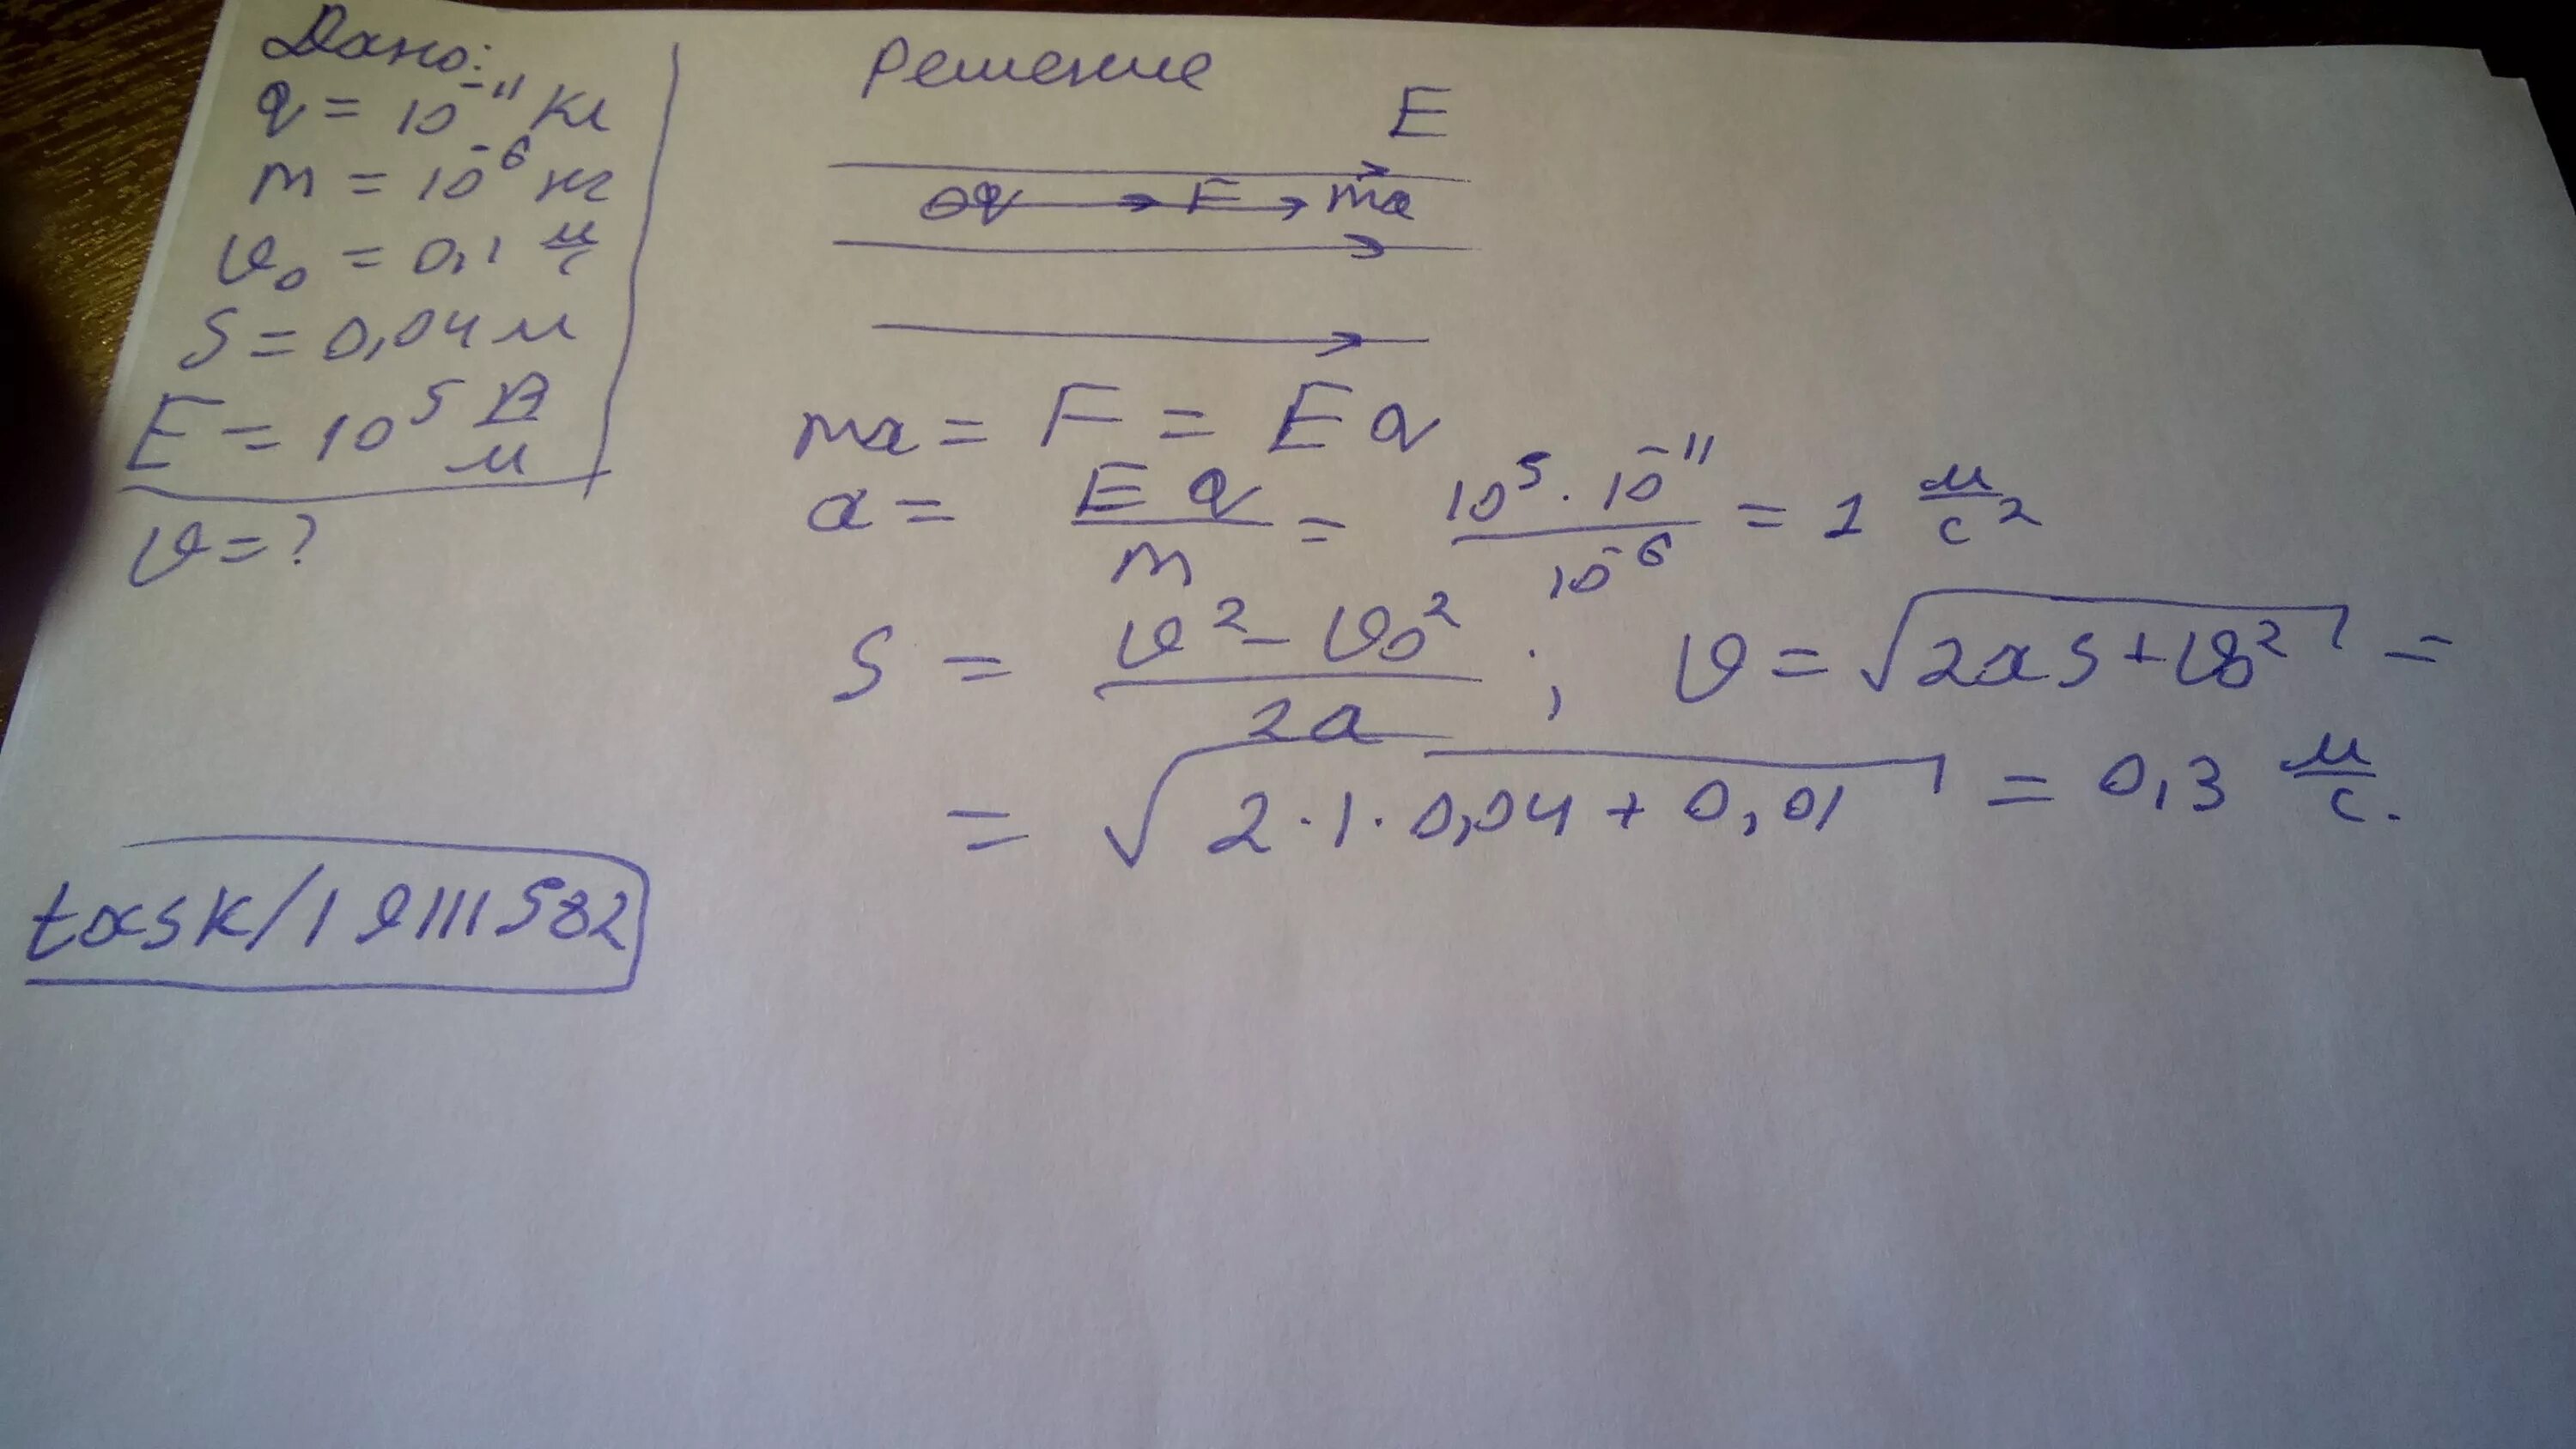 Дано:
q = 10⁻¹¹ Кл
m = 10⁻⁶ кг
v₀ = 0,1 м/с
S = 0,04 м
E = 10⁵ В/м
v = ?
Решение
E
q F ma
ma = F = E q
a = E q / m = 10⁵ · 10⁻¹¹ / 10⁻⁶ = 1 м/с²
S = v² - v₀² / 2a ; v = √2aS + v₀² =
= √2 · 1 · 0,04 + 0,01 = 0,3 м/с.
task/19111582